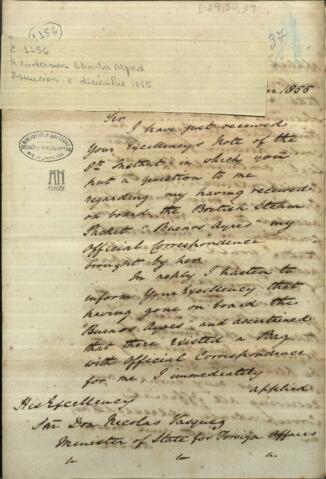 I-29,30,29
1256
37
C 1256
Henderson Charles Alfred
Asunción. 8 diciembre 1855
1855
Sir
I have just received
Your Excellency's Note of the
Instant, in which you
put a question to me
regarding my having received
on board the British Steam
Packet "Buenos Ayres" my
Official Correspondence
brought by her.
In reply I hasten to
inform Your Excellency that
having gone on board the
"Buenos Ayres" and ascertained
that there existed a Bag
with Official Correspondence
for me, I immediately
applied
His Excellency
Sñr Don Nicolas Vasquez
Minister of State for Foreign Affairs
BIBLIOTHECA NACIONAL
RIO DE JANEIRO
AN